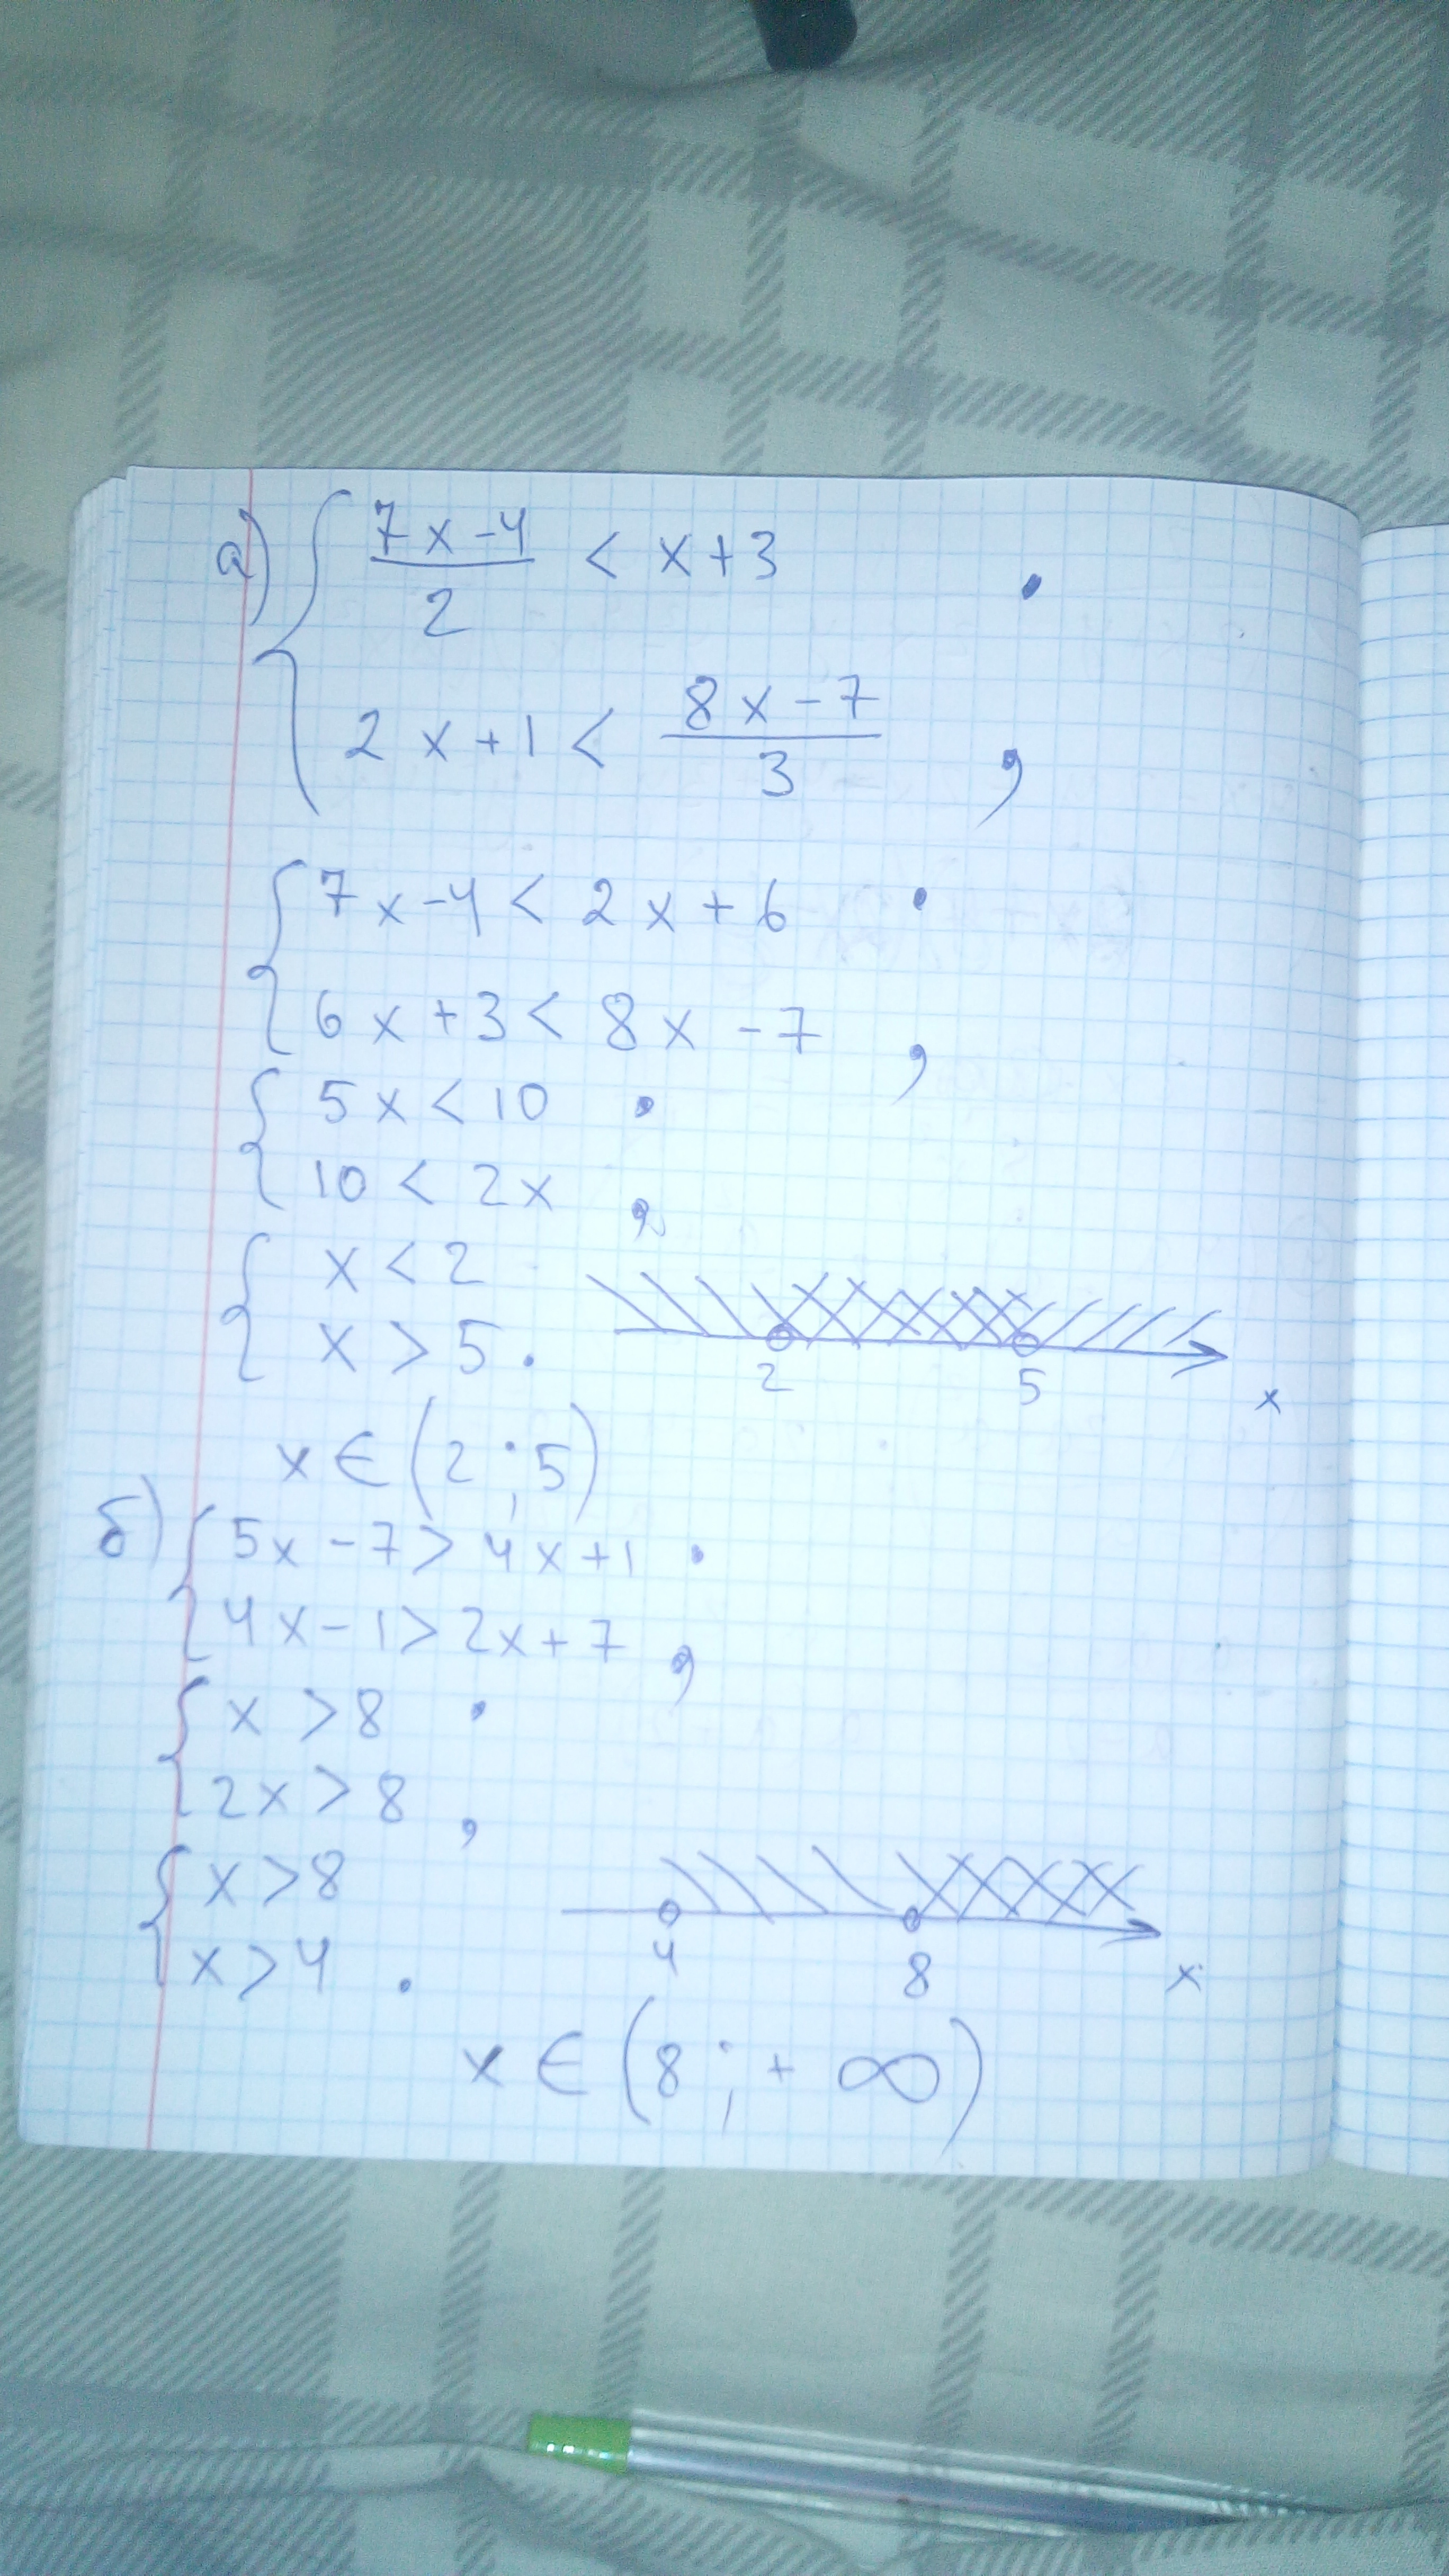 а) { (7x-4)/2 < x+3 ;
2x+1 < (8x-7)/3
{ 7x-4 < 2x+6 ;
6x+3 < 8x-7
{ 5x < 10 ;
10 < 2x
{ x < 2
x > 5 .
2 5 x
x ∈ (2 ; 5)
б) { 5x-7 > 4x+1 ;
4x-1 > 2x+7
{ x > 8 ;
2x > 8
{ x > 8
x > 4 .
4 8 x
x ∈ (8 ; + ∞)